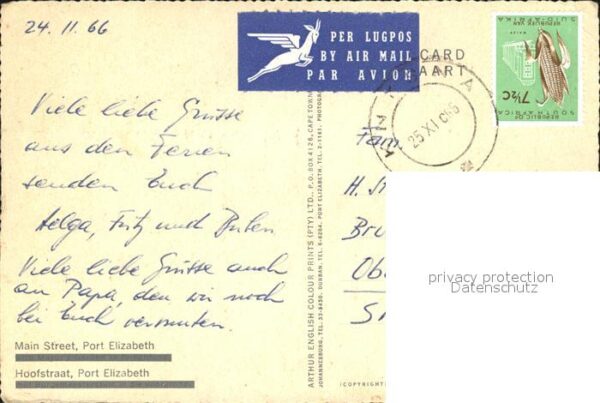 24. 11. 66
PER LUGPOS
BY AIR MAIL
PAR AVION
CARD
AART
REPUBLIEK VAN
SUID-AFRIKA
MAIZE
7½C
REPUBLIC OF
SOUTH AFRICA
25 XI
Viele liebe Grüsse
aus den Ferien
senden Euch
Helga, Fritz und
Viele liebe Grüsse auch
an Papa, den wir noch
bei Euch vermuten.
Fam.
H. St
Bru
Obe
S
privacy protection
Datenschutz
Main Street, Port Elizabeth
Hoofstraat, Port Elizabeth
ARTHUR ENGLISH COLOUR PRINTS (PTY) LTD., P.O. BOX 4128, CAPE TOWN
JOHANNESBURG, TEL. 33-8490. DURBAN, TEL. 6-6284. PORT ELIZABETH, TEL. 2-1141. PHOTOGRA
(COPYRIGHT